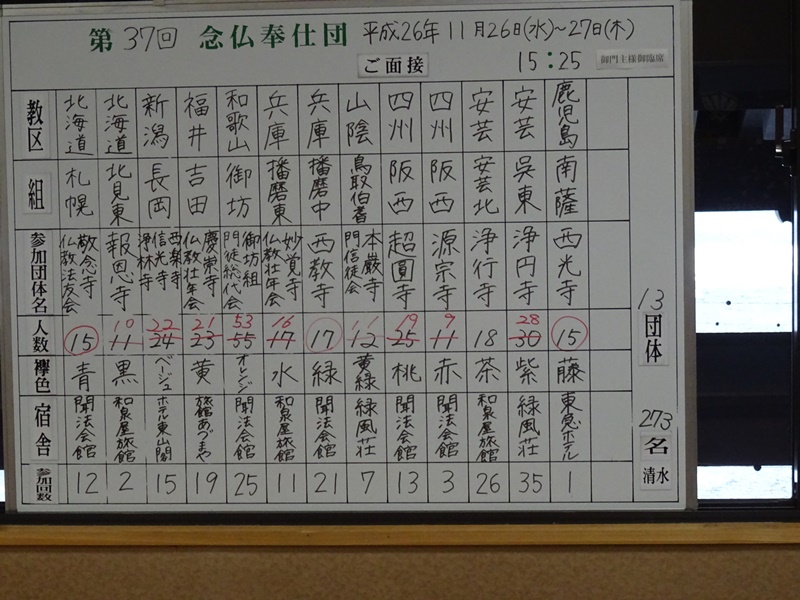 第37回 念仏奉仕団 平成26年11月26日(水)～27日(木)
ご面接 15:25 御門主様御臨席
教区 北海道 北海道 新潟 福井 和歌山 兵庫 兵庫 山陰 四州 四州 安芸 安芸 鹿児島
組 札幌 北見東 長岡 吉田 御坊 播磨東 播磨中 鳥取伯耆 阪西 阪西 安芸北 呉東 南薩
参加団体名 敬念寺仏教法友会 報恩寺 西楽寺信光寺浄林寺 慶崇寺仏教壮年会 御坊組門徒総代会 妙覚寺仏教壮年会 西教寺 本巌寺門信徒会 超圓寺 源宗寺 浄行寺 浄円寺 西光寺
10 22 21 53 16 11 19 9 28
人数 15 11 24 23 55 17 17 12 25 11 18 30 15
襷色 青 黒 ベージュ 黄 オレンジ 水 緑 黄緑 桃 赤 茶 紫 藤
宿舎 聞法会館 和泉屋旅館 ホテル東山閣 旅館あづまや 聞法会館 和泉屋旅館 聞法会館 緑風荘 聞法会館 聞法会館 和泉屋旅館 緑風荘 東急ホテル
参加回数 12 2 15 19 25 11 21 7 13 3 26 35 1
13団体
273名
清水